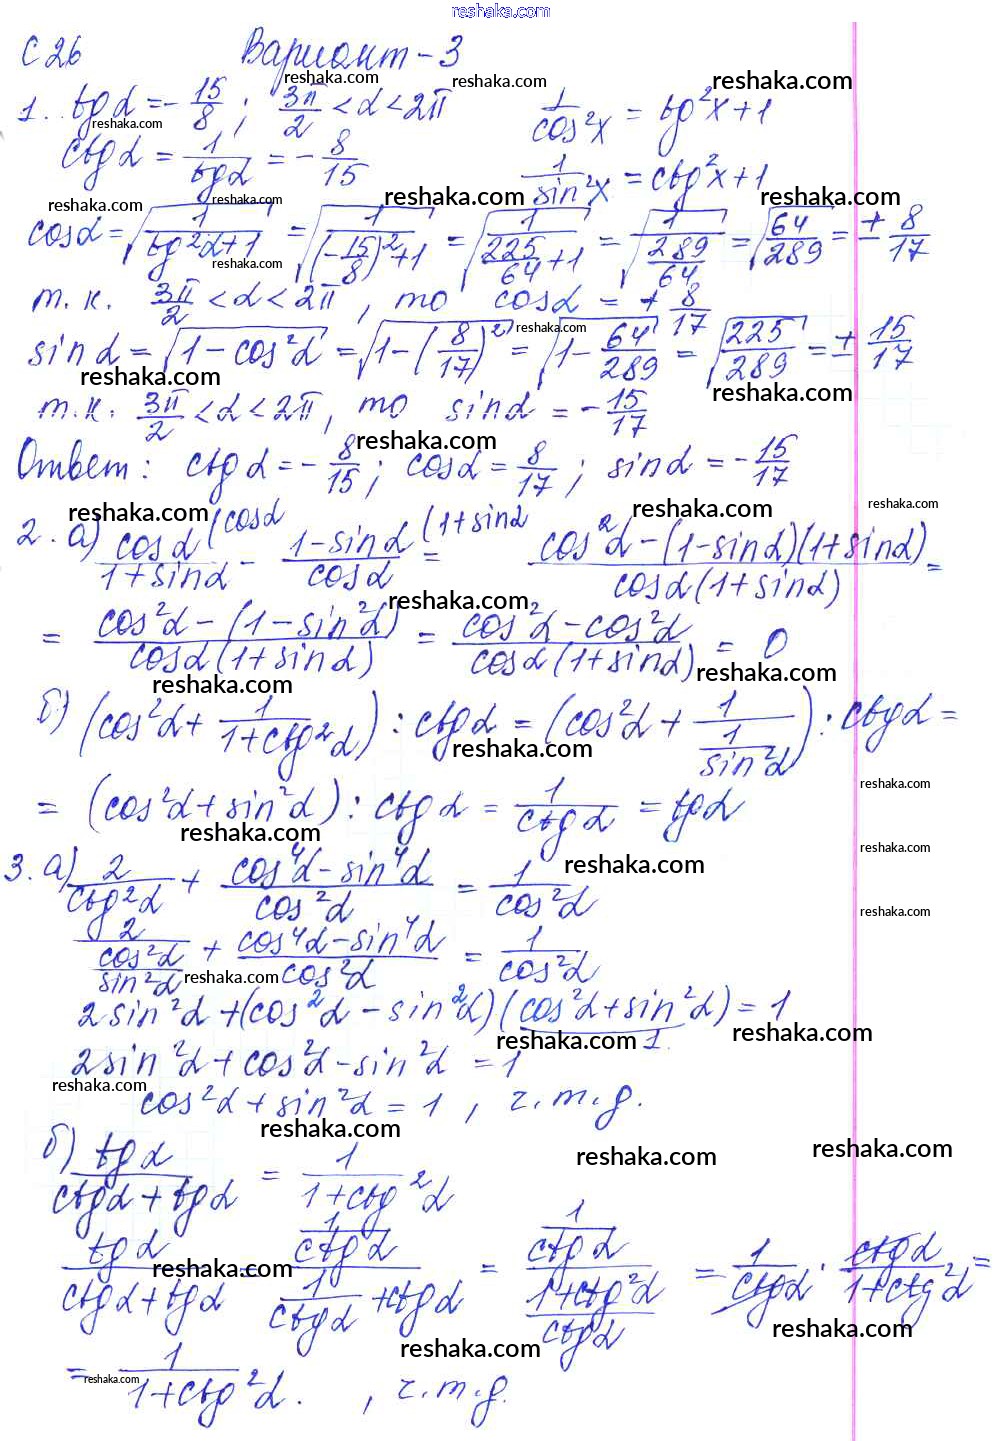 reshaka.com
С 26 Вариант - 3
1. tg α = -15/8 ; 3π/2 < α < 2π 1/cos²x = tg²x + 1
ctg α = 1/tg α = -8/15 1/sin²x = ctg²x + 1
cos α = √(1/(tg²α+1)) = √(1/((-15/8)²+1)) = √(1/(225/64+1)) = √(1/(289/64)) = √(64/289) = ± 8/17
т.к. 3π/2 < α < 2π, то cos α = + 8/17
sin α = √(1 - cos²α) = √(1-(8/17)²) = √(1 - 64/289) = √(225/289) = ± 15/17
т.к. 3π/2 < α < 2π, то sin α = -15/17
Ответ: ctg α = -8/15; cos α = 8/17; sin α = -15/17
2. а) cos α/(1+sin α) (cos α - (1-sin α)/cos α (1+sin α = (cos²α - (1-sin α)(1+sin α))/(cos α(1+sin α)) =
= (cos²α - (1 - sin²α))/(cos α(1+sin α)) = (cos²α - cos²α)/(cos α(1+sin α)) = 0
б) (cos²α + 1/(1+ctg²α)) : ctg α = (cos²α + 1/(1/sin²α)) : ctg α =
= (cos²α + sin²α) : ctg α = 1/ctg α = tg α
3. а) 2/ctg²α + (cos⁴α - sin⁴α)/cos²α = 1/cos²α
2/(cos²α/sin²α) + (cos⁴α - sin⁴α)/cos²α = 1/cos²α
2sin²α + (cos²α - sin²α)(cos²α + sin²α) = 1
1
2sin²α + cos²α - sin²α = 1
cos²α + sin²α = 1, ч.т.д.
б) tg α/(ctg α + tg α) = 1/(1+ctg²α)
tg α/(ctg α + tg α) = (1/ctg α)/(1/ctg α + ctg α) = (1/ctg α)/((1+ctg²α)/ctg α) = 1/ctg α · ctg α/(1+ctg²α) =
= 1/(1+ctg²α). , ч.т.д.